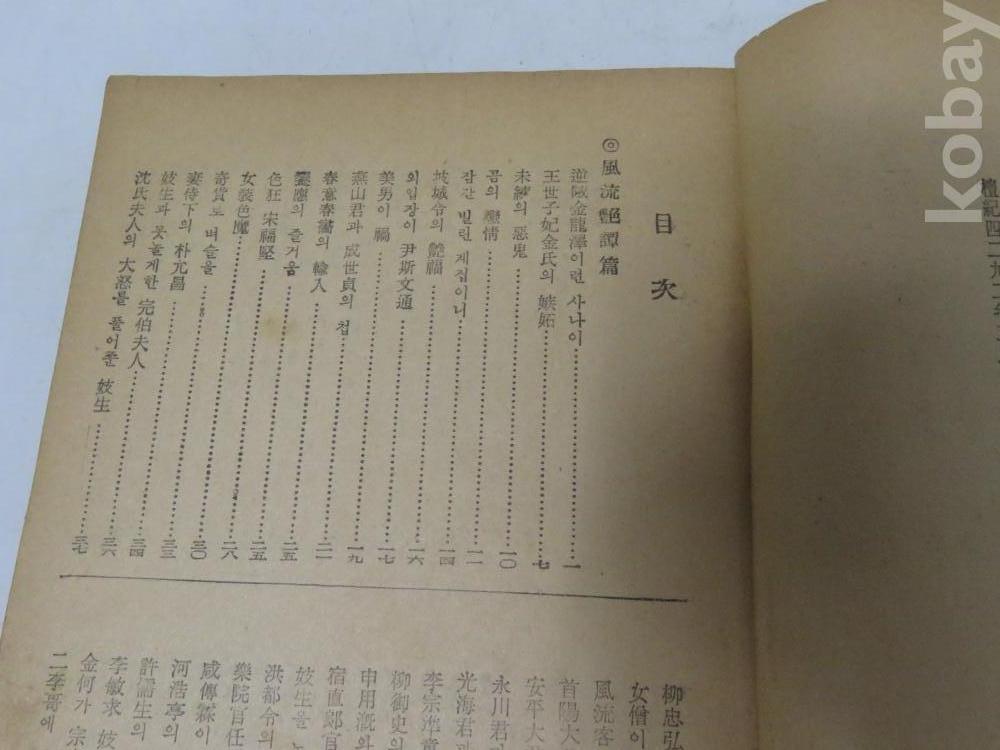 kobay
目次
◎ 風流艶譚篇
逆賊金龍澤이런 사나이 一
王世子妃金氏의 嫉妬 七
未練의 惡鬼 一〇
곰의 戀情 一一
잠간 빌린 게집이니 一四
의 艶福 一六
외입장이 尹斯文通 一七
美男이 禍 一九
燕山君과 成世貞의 첩 二一
春意春畵의 輸入 二五
의 즐거움 二五
色狂 宋福堅 二八
女裝色魔 三〇
奇貨로 벼슬을 三三
妻侍下의 朴元昌 三四
妓生과 못놀게한 完伯夫人 三六
沈氏夫人의 大怒를 풀어준 妓生 三七
柳忠弘
女僧이
風流客
首陽大
安平大
永川君과
光海君과
李宗準童
柳御史의
申用漑와
宿直郎官
妓生을
洪都令의
樂院官任
咸傳霖이
河浩亭의
許儒生의
李敏求 妓
金何가 宗
二李哥에
檀紀四二九